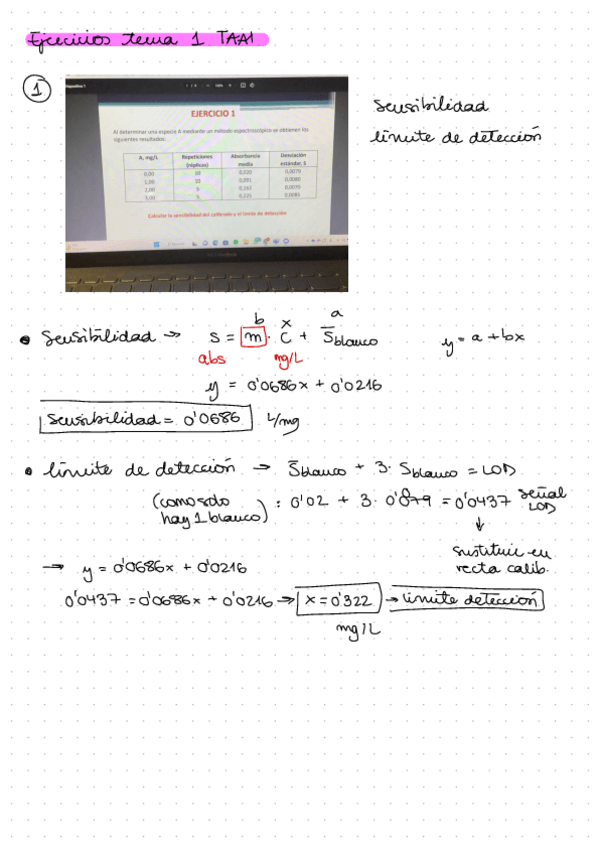 Ejercicios tema 1 TAAI
1
EJERCICIO 1
Al determinar una especie A mediante un método espectroscópico se obtienen los
siguientes resultados:
A, mg/L Repeticiones (réplicas) Absorbancia media Desviación estándar, S
0,00 10 0,020 0,0079
1,00 10 0,0080
2,00 5 0,0079
3,00 5 0,0085
Calcular la sensibilidad del calibrado y el límite de detección
sensibilidad
límite de detección
b x a
• Sensibilidad → S = m · C + S̄blanco y = a + bx
abs mg/L
y = 0'0686x + 0'0216
Sensibilidad = 0'0686 L/mg
• límite de detección → S̄blanco + 3 · Sblanco = LOD
(como solo hay 1 blanco) : 0'02 + 3 · = 0'0437 señal LOD
↓
sustituir en
recta calib.
→ y = 0'0686x + 0'0216
0'0437 = 0'0686x + 0'0216 → x = 0'322 → límite detección
mg/L